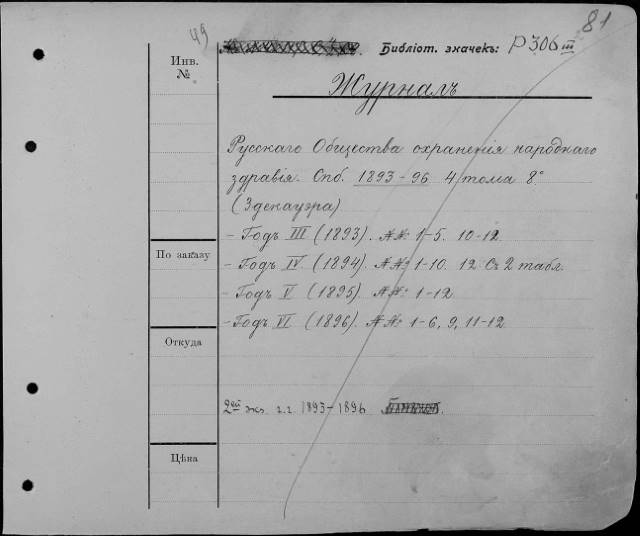 49
81
Библіот. значекъ: Р306 III
Инв.
№
Журналъ
Русскаго Общества охраненія народнаго
здравія. Спб. 1893-96 4 тома 8°
(Зденауэра)
- Годъ III (1893). №№: 1-5. 10-12
По заказу
- Годъ IV. (1894). №№: 1-10. 12. Съ 2 табл.
- Годъ V (1895). №№: 1-12
- Годъ VI (1896). №№: 1-6, 9, 11-12
Откуда
2ой экз. г.г. 1893-1896
Цѣна